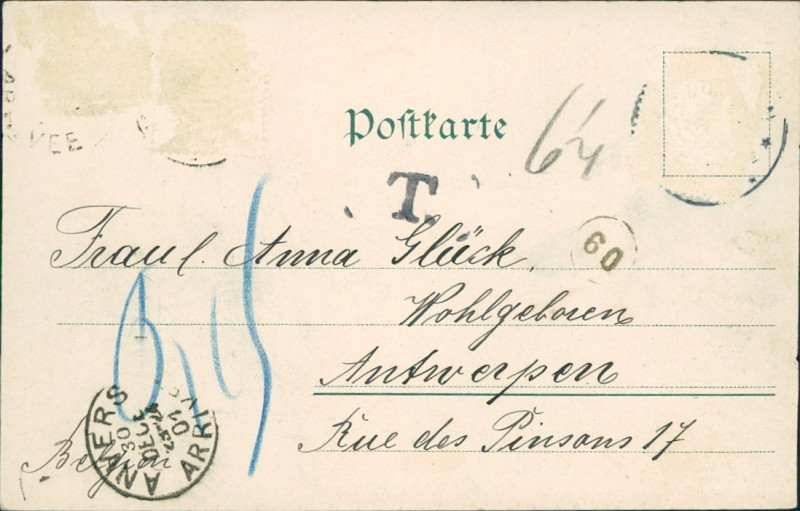 Postkarte
64
T.
Fraul. Anna Glück,
60
Wohlgeboren
0,15
Antwerpen
Rue des Pinsons 17
Belgien
ANVERS
30
DECE
01
ARRIV